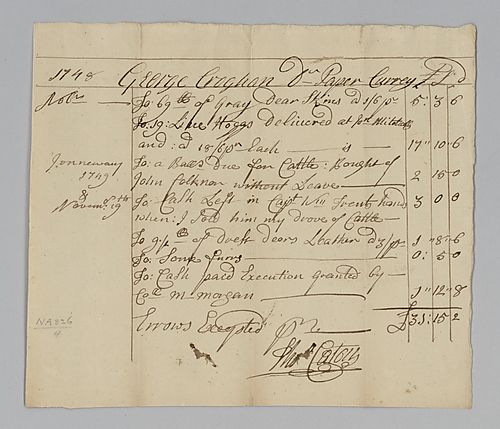 1748 George Croghan Dr Paper Currey £ S d
Nobr To: 69 lb of Gray Dear Skins a 1/6 pr 5: 3 6
To: 19: Live Hoggs Delivered at
and: a 18/6 pr Each — is — 17" 10" 6
Jonneuary To: a Balls Due for Cattle: Bought of
1749 John Folknor without Leave — 2 15 0
& To: Cash Left in Capt Wm Trents hand 3 0 0
Novembr 19th when: I Sold him my drove of Cattle —
To 9¼ lb of drest deers Leather a 3/ pr 1" 8" 6
To: Some Furrs 0: 5 0
To: Cash paid Execution granted by —
Coll m morgan — 1" 12" 8
Errows Excepted pr £ 35: 15 2
Thos Caton
NA 826
4